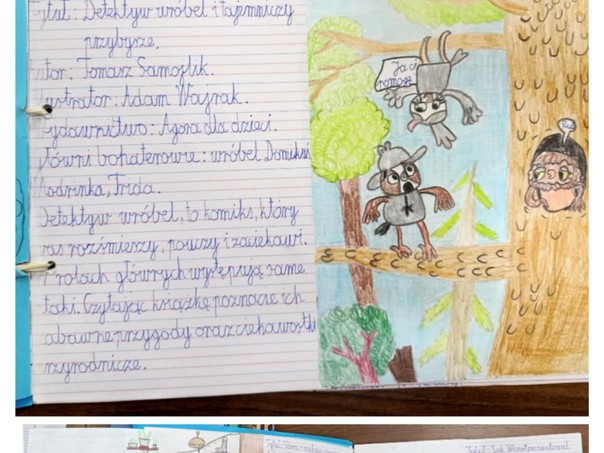 Tytuł: Detektyw wróbel i tajemniczy
przybysze.
utor: Tomasz Samojlik.
ustrator: Adam Wajrak.
ydawnictwo: Agora dla dzieci.
łówni bohaterowie: wróbel Dominik
Modrinka, Trida.
Detektyw wróbel, to komiks, który
was rozśmieszy, pouczy i zaciekawi.
W rolach głównych występują same
taki. Czytając książkę poznacie ich
abawne przygody oraz ciekawostki
rzyrodnicze.